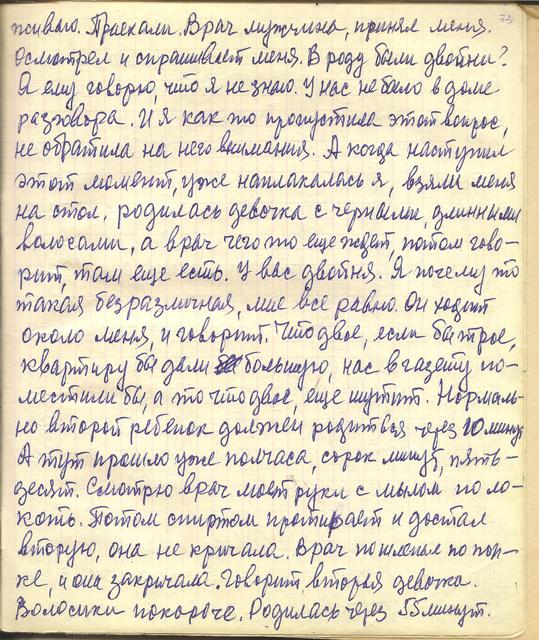 73
живаю. Приехали. Врач мужчина, принял меня.
Осмотрел и спрашивает меня. В роду были двойни?
А ему говорю, что я не знаю. У нас не было в доме
разговора. И я как то пропустила этот вопрос,
не обратила на него внимания. А когда наступил
этот момент, уже наплакалась я, взяли меня
на стол, родилась девочка с черными, длинными
волосами, а врач чего то еще ждет, потом гово-
рит, там еще есть. У вас двойня. Я почему то
такая безразличная, мне все равно. Он ходит
около меня, и говорит. Что двое, если бы трое,
квартиру бы дали большую, нас в газету по-
местили бы, а то что двое, еще шутит. Нормаль-
но второй ребенок должен родиться через 10 минут
А тут прошло уже полчаса, сорок минут, пять-
десят. Смотрю врач моет руки с мылом по ло-
коть. Потом спиртом протирает и достал
вторую, она не кричала. Врач пошлепал по поп-
ке, и она закричала. Говорит, вторая девочка.
Волосики покороче. Родилась через 55 минут.